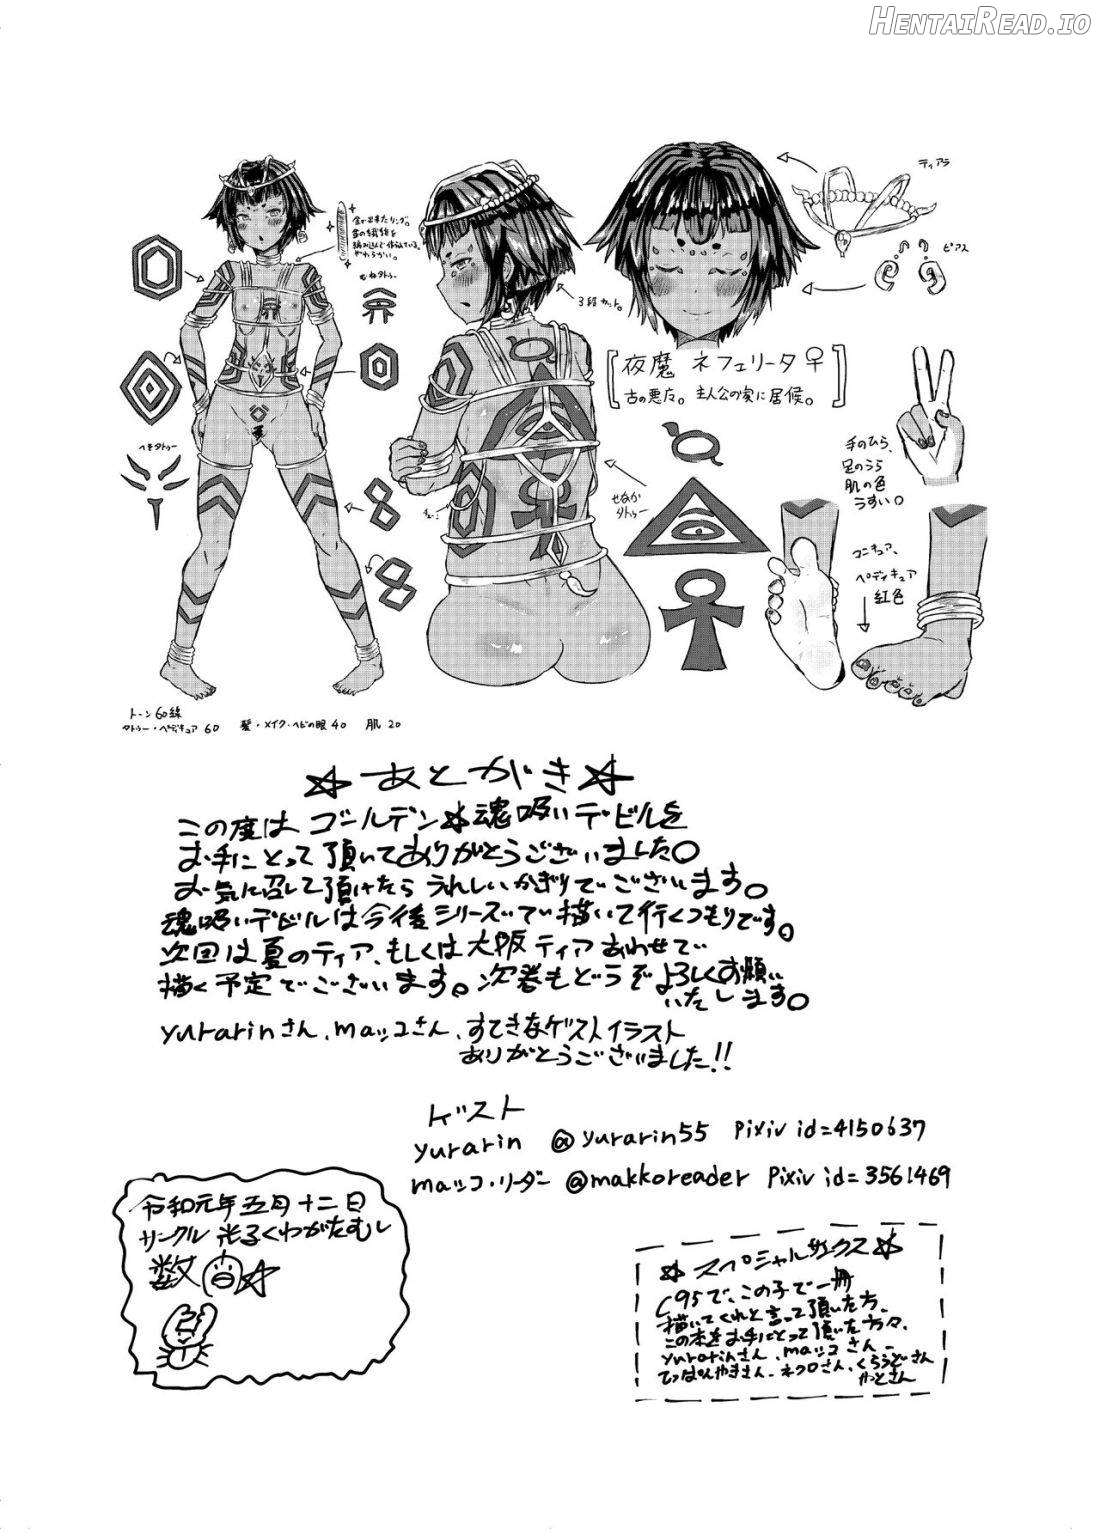 HENTAIREAD.IO
ティアラ
ピアス
むねタトゥー
3段カット。
[夜魔 ネフェリータ♀
古の悪魔。主人公の家に居候。]
へそタトゥー
せなか
タトゥー
手のひら、
足のうら
肌の色
うすい。
マニキュア、
ペディキュア
紅色
トーン60線
タトゥー・ペディキュア 60 髪・メイク・ヘビの眼 40 肌 20
☆あとがき☆
この度はゴールデン☆魂吸いデビルを
お手にとって頂いてありがとうございました。
お気に召して頂けたらうれしいかぎりでございます。
魂吸いデビルは今後シリーズで描いて行くつもりです。
次回は夏のティア、もしくは大阪ティアあわせで
描く予定でございます。次巻もどうぞよろしくお願い
いたします。
yurarinさん、mаッコさん、すてきなゲストイラスト
ありがとうございました!!
ゲスト
yurarin @yurarin55 Pixiv id=4150637
maッコ・リーダー @makkoreader Pixiv id=3561469
令和元年五月十二日
サークル 光子くわがたむし
数
☆スペシャルサンクス☆
C95で、この子で一冊
描いてくれと言って頂いた方、
この本をお手にとって頂いた方々、
yurarinさん、maッコさん、
てっぱんやきさん、ネクロさん、くろうどさん
やっとさん